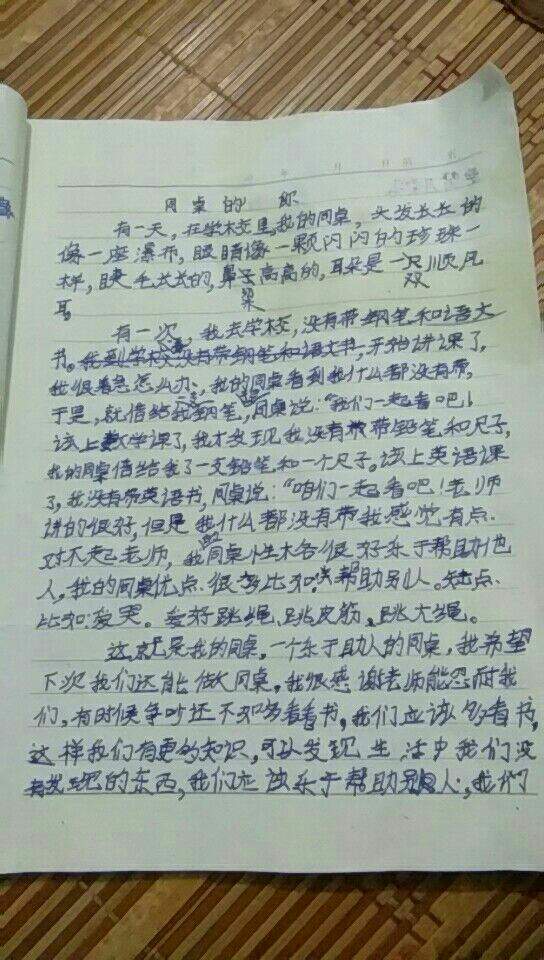 年 月 日
同桌的你
有一天，在学校里我的同桌，头发长长的
像一座瀑布，眼睛像一颗闪闪的珍珠一
样，睫毛长长的，鼻子高高的，耳朵是一只顺风
梁 双
耳。
有一次，我去学校，没有带钢笔和语文
书。我到学校没有带钢笔和语文书，开始讲课了，
我很着急怎么办，我的同桌看到我什么都没有带，
于是，就借给我钢笔，同桌说：“我们一起看吧！
该上数学课了，我才发现我没有带铅笔和尺子，
我的同桌借给了我一支铅笔和一个尺子。该上英语课
了，我没有带英语书，同桌说：“咱们一起看吧！老师
讲的很好，但是我什么都没有带我感觉有点
对不起老师，我同桌性格很好乐于帮助他
人，我的同桌优点很多比如：帮助别人。缺点
比如：爱哭。爱好跳绳、跳皮筋、跳大绳。
这就是我的同桌，一个乐于助人的同桌，我希望
下次我们还能做同桌，我很感谢老师能忍耐我
们，有时候争吵还不如多看看书，我们应该多看书，
这样我们有更多知识，可以发现生活中我们没
有发现的东西，我们应该乐于帮助别人，我们